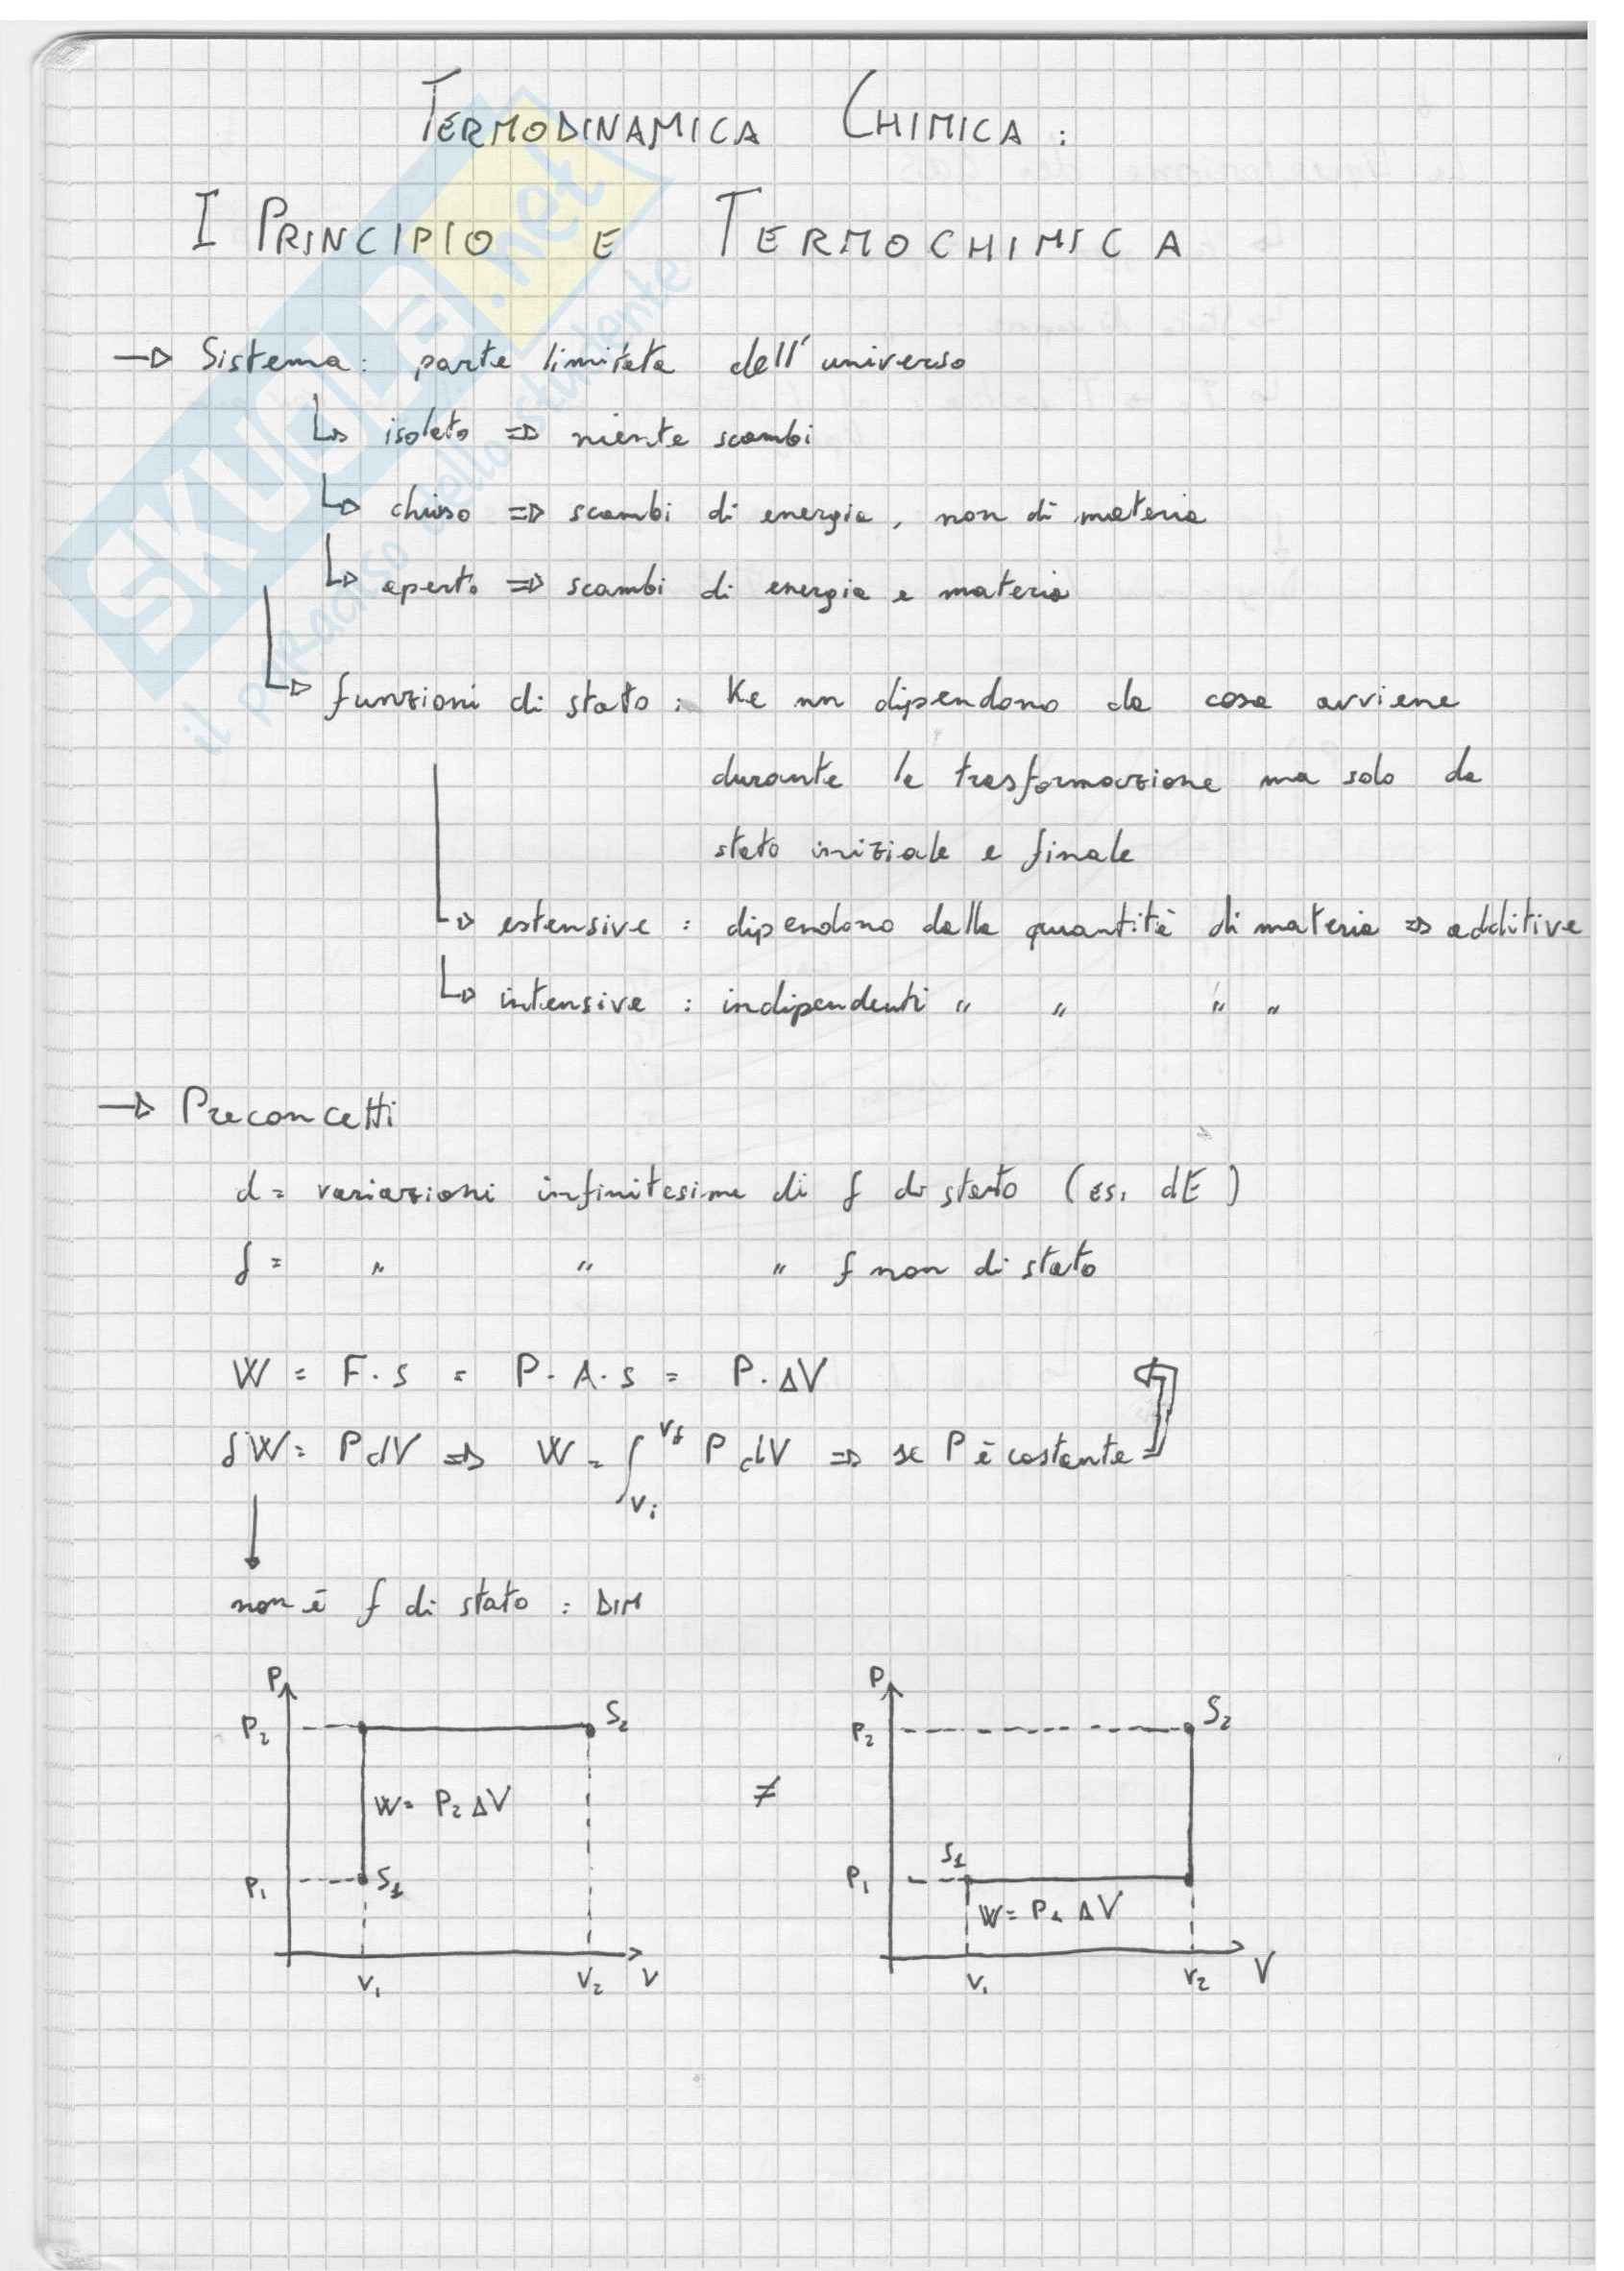 TERMODINAMICA CHIMICA:
I PRINCIPIO E TERMOCHIMICA
→ Sistema: parte limitata dell'universo
↳ isolato ⇒ niente scambi
↳ chiuso ⇒ scambi di energia, non di materia
↳ aperto ⇒ scambi di energia e materia
↳ funzioni di stato: Ke nn dipendono da cosa avviene
durante la trasformazione ma solo da
stato iniziale e finale
↳ estensive: dipendono dalla quantità di materia ⇒ additive
↳ intensive: indipendenti " " " "
→ Preconcetti
d = variazioni infinitesime di f di stato (es. dE)
δ = " " " f non di stato
W = F·s = P·A·s = P·ΔV
δW = PdV ⇒ W = ∫ Vf Vi P dV ⇒ se P è costante
non è f di stato: DIM
P P
P2 S2 P2 S2
W = P2 ΔV ≠
P1 S1 P1 S1
W = P1 ΔV
V1 V2 V V1 V2 V
SKUOLA.net
il paradiso dello studente